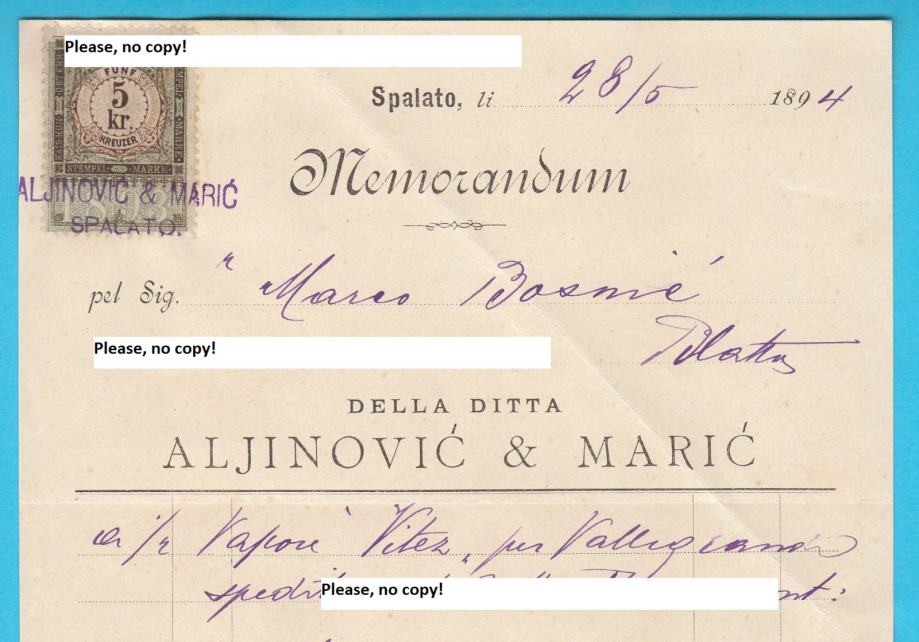 Please, no copy!
FÜNF
5
kr.
KREUZER
STEMPEL MARKE
1893
ALJINOVIĆ & MARIĆ
SPALATO.
Spalato, li 28/5 1894
Memorandum
pel Sig. " Marco Bosnić
Please, no copy!
DELLA DITTA
ALJINOVIĆ & MARIĆ
Vapore " Vitez " per Vallegrande
Please, no copy!